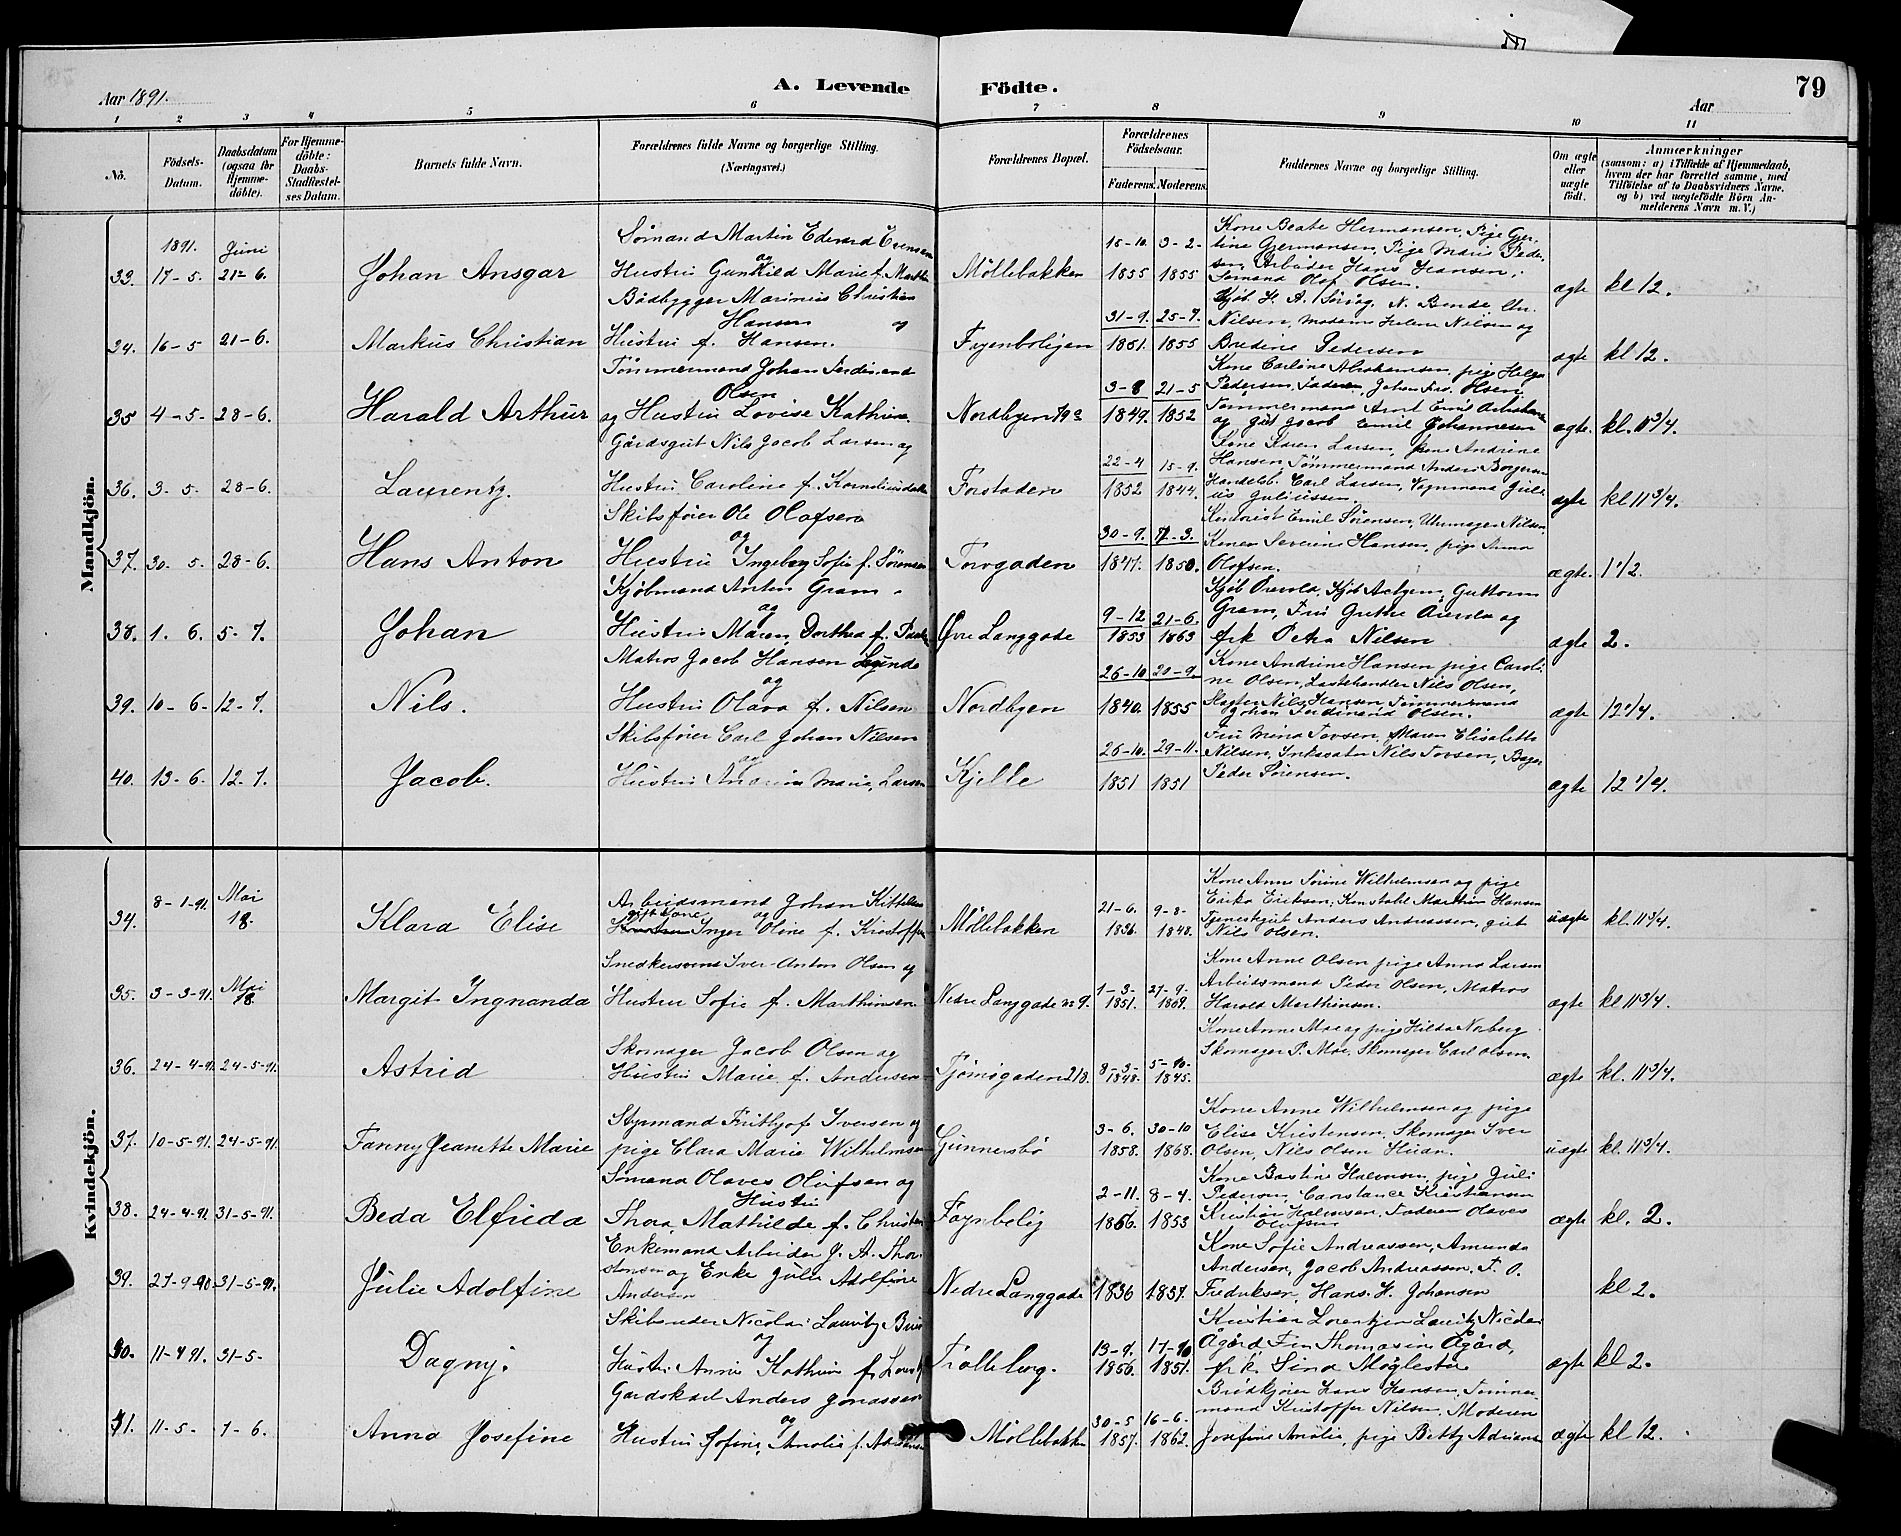 79
Aar 1891.
A. Levende Födte.
Aar
1 2 3 4 5 6 7 8 9 10 11
No.
Födsels-Datum.
Daabsdatum (ogsaa for Hjemme-döbte).
For Hjemme-döbte: Daabs-Stadfæstel-ses Datum.
Barnets fulde Navn.
Forældrenes fulde Navne og borgerlige Stilling.
(Næringsvei.)
Forældrenes Bopæl.
Forældrenes Födselsaar.
Faderens. Moderens.
Faddernes Navne og borgerlige Stilling.
Om ægte eller uægte födt.
Anmærkninger
(saasom: a) i Tilfælde af Hjemmedaab,
hvem der har forrettet samme, med
Tilföielse af to Daabsvidners Navne.
og b) ved uægtefödte Börn An-
melderens Navn m. V.)
Mandkjön.
1891. Juni
Sømand Martin Edvard
33. 17-5. 21-6. Johan Ansgar
og
Hustru Gunhild Marie f.
Møllebakken
15-10. 3-2-
1855 1855
Kone Beate Hermansen, Pige Ger-
tine Germansen, Pige Marie Peder-
sen, Arbeider Hans Hansen,
Sømand Olof Olsen.
ægte kl 12.
Baadbygger Marinius Christian
Hansen og
34. 16-5 21-6. Markus Christian
Hustru f. Hansen.
Fayenboligen
31-9. 25-7.
1851. 1855
Nilsen, Madam Helene Nilsen og
Bredine Pedersen
ægte kl 12.
Tømmermand Johan Ferdinand
Olsen
35 4-5- 28-6. Harald Arthur
og Hustru Lovise Kathrine
Nordbyen
3-8 21-5
1849. 1852
Kone Carline Abrahamsen, pige Helga
Pedersen, Faderen, Johan Fred. Olsen,
og gut Jacob Emil Johannesen
ægte. kl. 11 3/4.
Gårdsgut Nils Jacob Larsen og
36. 3-5- 28-6. Laurentz.
Hustru Caroline f.
Forstaden
22-4 15-9.
1852 1844.
Kone Karen Larsen, Kone Andrine
Hansen, Tømmermand Anders
Handelsb. Carl Larsen, Vognmand Juli-
us Juliussen.
ægte kl 11 3/4.
Skibsfører Ole Olafsen
og
37. 30-5. 28-6. Hans Anton
Hustru Ingeborg Sofie f. Sørensen
Torvgaden
30-9. 7-3.
1847. 1850.
Emil Sørensen, Uhrmager Nilsen,
Konen Severine Hansen, pige Anna
Olafsen.
ægte. 1 1/2.
Kjøbmand Anton Gram
og
38. 1. 6. 5-7. Johan
Hustru Maren Dorthea f.
Øvre Langgade
9-12 21-6.
1853 1863
Gram, Fru Grethe og
frk Petra Nilsen
ægte 2.
Matros Jacob Hansen Lunde
og
39. 10-6- 12-7. Nils.
Hustru Olava f. Nilsen
Nordbyen
26-10 20-9.
1840. 1855
Kone Andrine Hansen pige Caroli-
ne Olsen, Lastehandler Nils Olsen,
Nils Hansen, Tømmermand
Johan Ferdinand Olsen.
ægte 12 1/4.
Skibsfører Carl Johan Nilsen
og
40. 13-6. 12-7. Jacob.
Hustru Marie, Larsen
Kjelle
26-10. 29-11.
1851 1851
Fru Mina Tovsen, Maren Elisabeth
Nilsen, Inkassator Nils Tovsen, Bager
Peder Sørensen.
ægte 12 1/4.
Kvindekjön.
34. 8-1-91. Mai 18. Klara Elise
Arbeidsmand Johan Kittelsen
gift Kone og
Inger Oline f. Kristoffer
Møllebakken
21-6. 9-8-
1836. 1848.
Kone Anne Sørine Wilhelmsen og pige
Erika Eriksen, Konstabel Martin Hansen
Tjenestgut Anders Andreassen, gut
Nils Olsen.
uægte kl. 11 3/4.
35. 3-3-91. Mai 18. Margit Ingnanda
Snedkersvend Iver Anton Olsen og
Hustru Sofie f. Marthinsen
Nedre Langgade No 9.
1-3- 27-9.
1851. 1869.
Kone Anne Olsen pige Anna Larsen
Arbeidsmand Peder Olsen, Matros
Harald Marthinsen.
ægte kl 11 3/4.
36. 24-4-91. 24-5-91. Astrid
Skomager Jacob Olsen og
Hustru Marie f. Andersen
Tjømøgaden 218.
8-3- 5-10-
1848. 1845.
Kone Anne Moe og pige Hilda Norberg
Skomager P. Moe, Skomager Carl Olsen.
ægte kl. 11 3/4.
37. 10-5-91. 24-5-91. Fanny Jeanette Marie
Styrmand Frithjof Iversen og
pige Clara Marie Wilhelmsen
Gunnersbø
3-6. 30-10
1858. 1868.
Kone Anne Wilhelmsen og pige
Elise Kristensen, Skomager Iver
Olsen, Nils Olsen
uægte kl. 11 3/4.
38. 24-4-91. 31-5-91. Beda Elfrida
Sømand Olaves Olufsen og
Hustru
Thora Mathilde f.
Faynbolig
2-11. 8-4.
1856. 1853
Kone Bastine Halvorsen, pige Juli
Pedersen, Constance Kristiansen
Kristian Halvorsen, Faderen Olaves
Olufsen
ægte kl. 2.
39. 27-9-90. 31-5-91. Julie Adolfine
Enkemand Arbeider J. A. Thor-
stensen og Enke Julie Adolfine
Andersen
Nedre Langgade
1836 1857.
Kone Sofie Andreassen, Amunda
Andersen, Jacob Andreassen, F. O.
Fredriksen, Hans H. Johansen
kl 2.
40. 11-4 91. 31-5- Dagny.
Skibsreder Nicolai Lauritz
og
Hustru Anne Kathrine f.
Trolleborg.
13-9. 17-10
1856. 1851.
Kristian Lorentzen Lauritz Nicolai
Ågård, Fru Thomasine Ågård,
frk. Sina Møglestu
ægte kl 2.
41. 11-5. 7-6. Anna Josefine
Gardskarl Anders Jonassen
og
Hustru Josefine Amalie f.
Møllebakken
30-5 16-6.
1857. 1862.
Brødkjører Hans Hansen, Tømmer-
mand Kristoffer Nilsen, Moderen
Josefine Amalie, pige Betty
ægte kl 12.